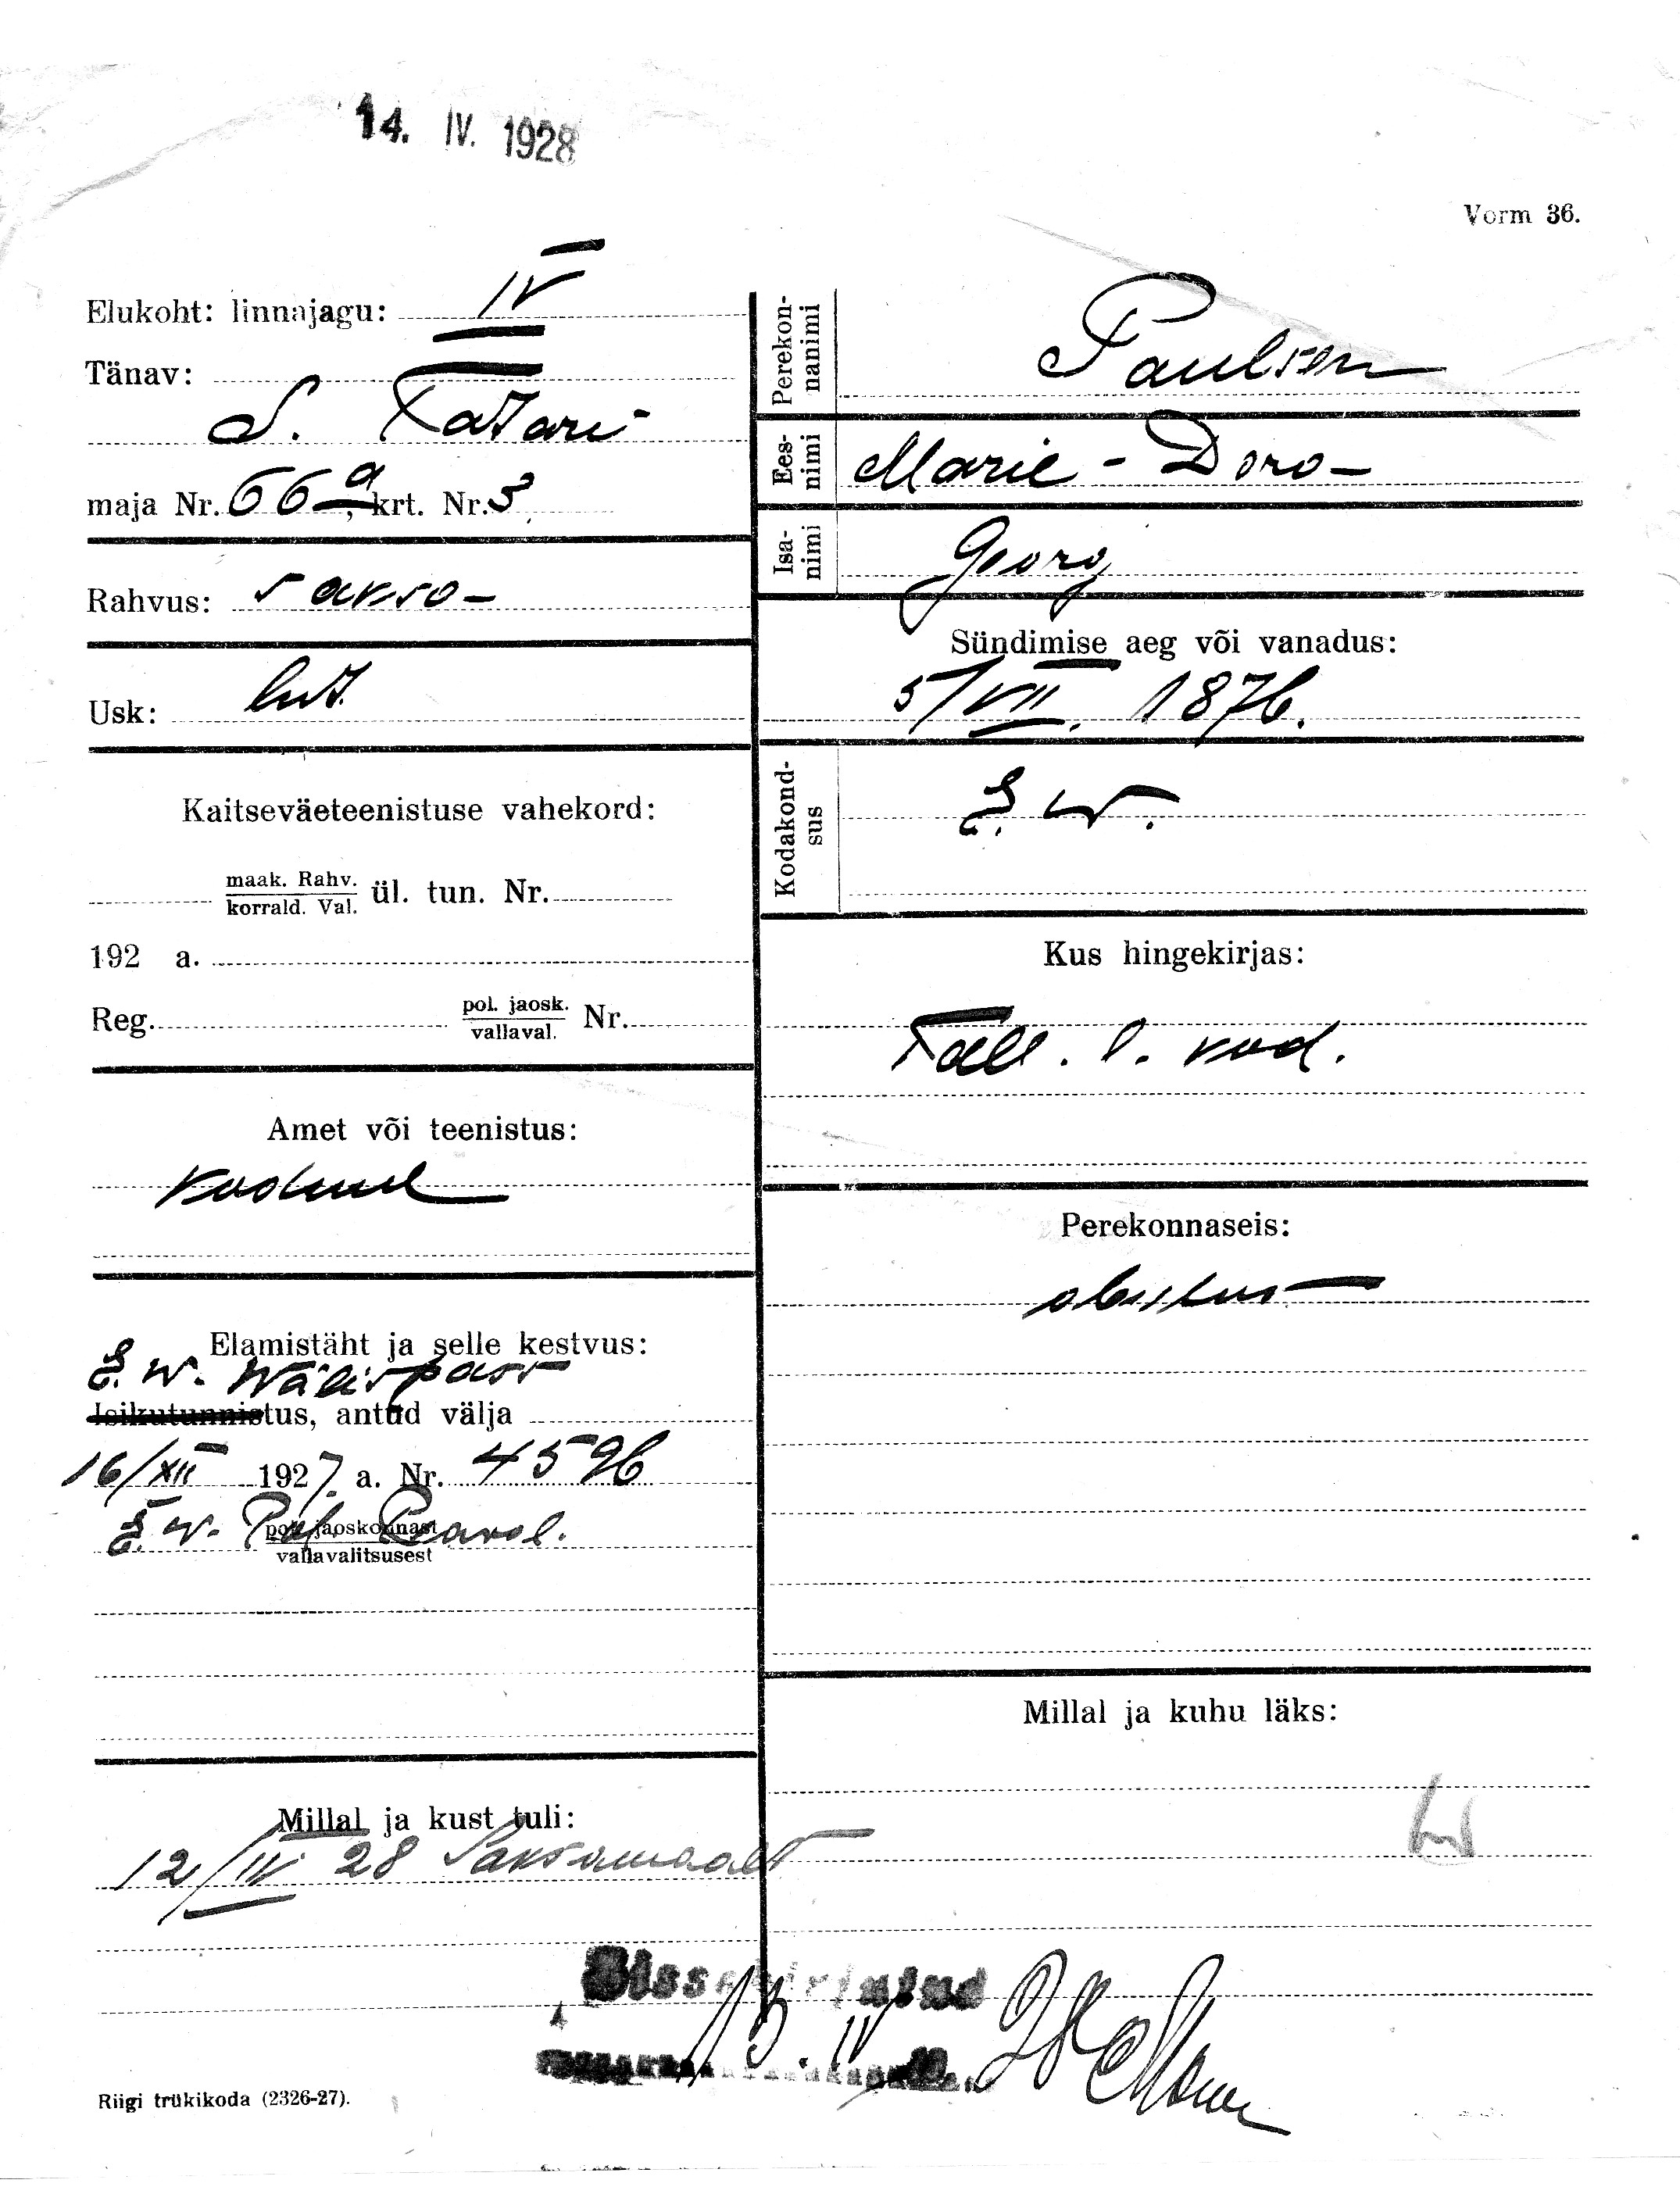 14. IV. 1928
Vorm 36.
Elukoht: linnajagu: IV
Tänav:
S. Tatari
maja Nr. 66 a, krt. Nr. 3
Rahvus: sakso
Usk: lut.
Kaitseväeteenistuse vahekord:
maak. Rahv.
korrald. Val. ül. tun. Nr.
192 a.
Reg. pol. jaosk.
vallaval. Nr.
Amet või teenistus:
kodunel
Elamistäht ja selle kestvus:
E. W. Wälispass
Isikutunnistus, antud välja
16/XII 1927. a. Nr. 4596
E. W. Pol. Peaval.
pol. jaoskonnast
vallavalitsusest
Millal ja kust tuli:
12/IV 28 Saksamaalt
Perekon-
nanimi
Paulsen
Ees-
nimi
Marie - Doro-
Isa-
nimi
Georg
Sündimise aeg või vanadus:
5/VII. 1876.
Kodakond-
sus
E. W.
Kus hingekirjas:
Tall. l. kod.
Perekonnaseis:
abielus
Millal ja kuhu läks:
Sissekirjutud
13. IV 28
Riigi trükikoda (2326-27).